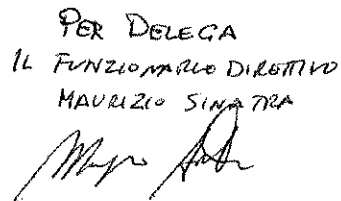 PER DELEGA
IL FUNZIONARIO DIRETTIVO
MAURIZIO SINATRA